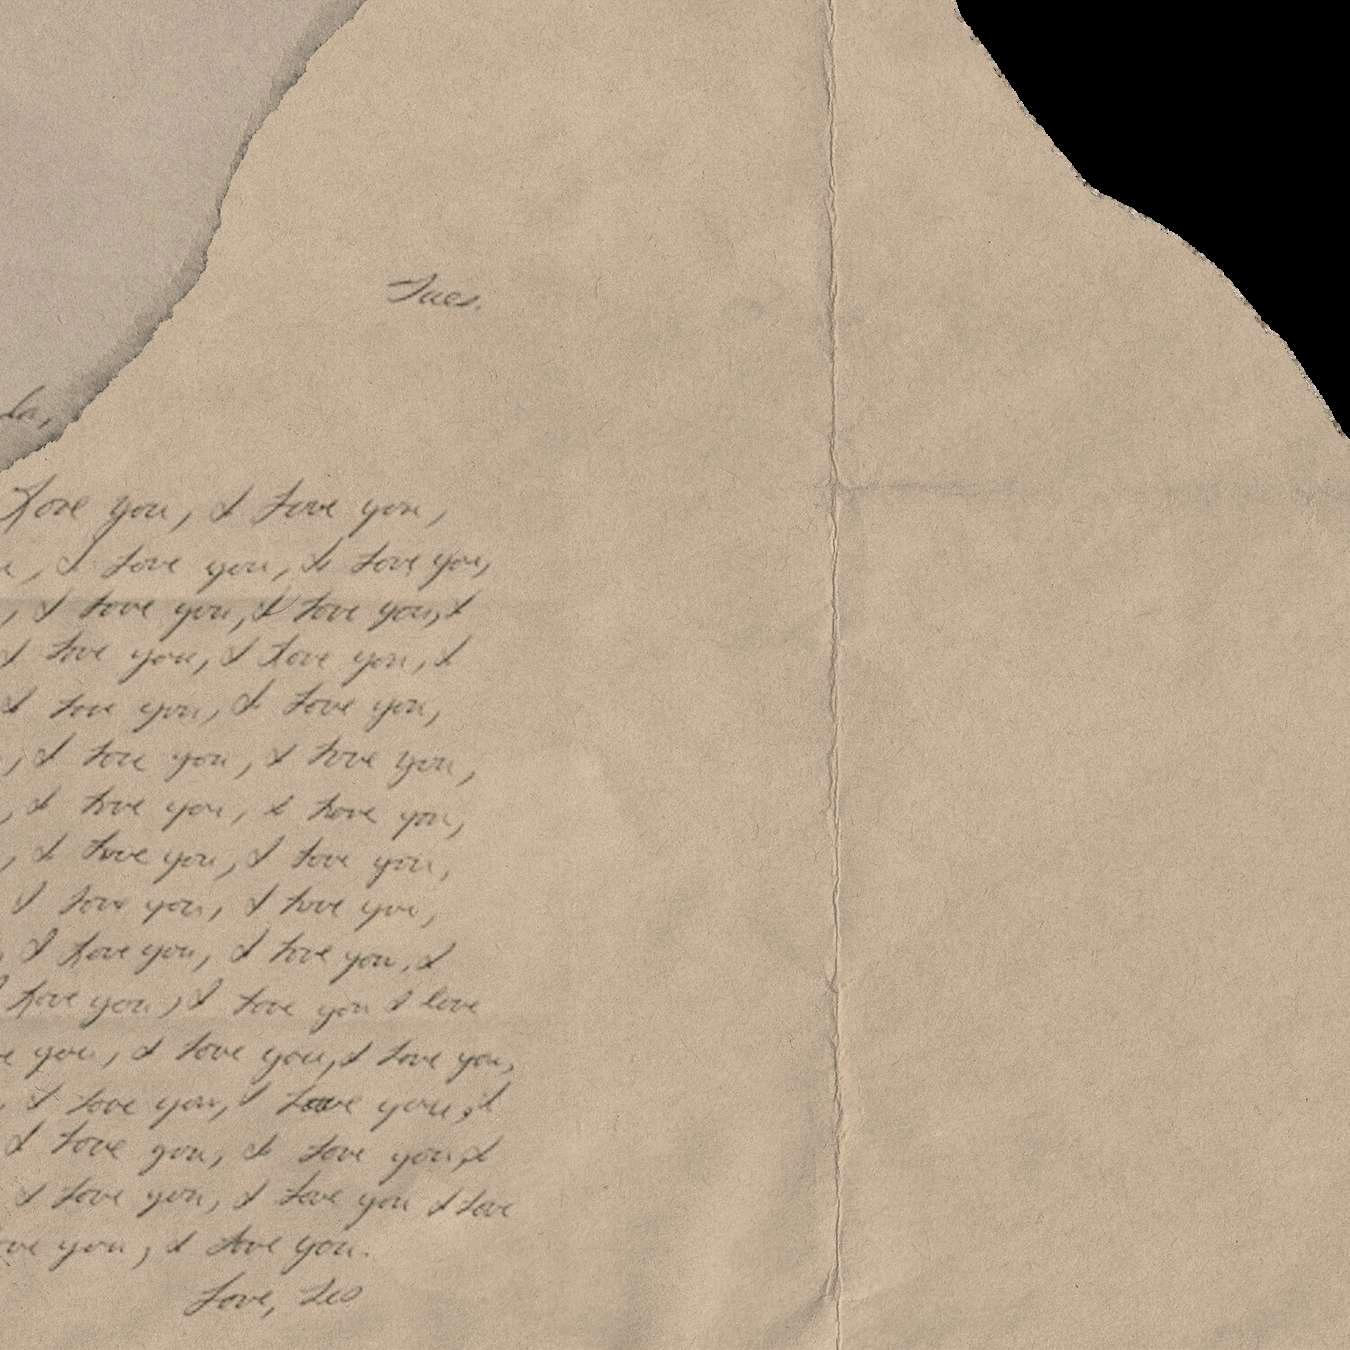 Tues.
da,
Love you, I love you,
u, I love you, I love you,
, I love you, I love you, I
I love you, I love you, I
I love you, I love you,
, I love you, I love you,
, I love you, I love you,
, I love you, I love you,
I love you, I love you,
, I love you, I love you, I
I love you, I love you I love
e you, I love you, I love you,
, I love you, I love you, I
I love you, I love you, I
I love you, I love you I love
ove you, I love you.
Love, Leo